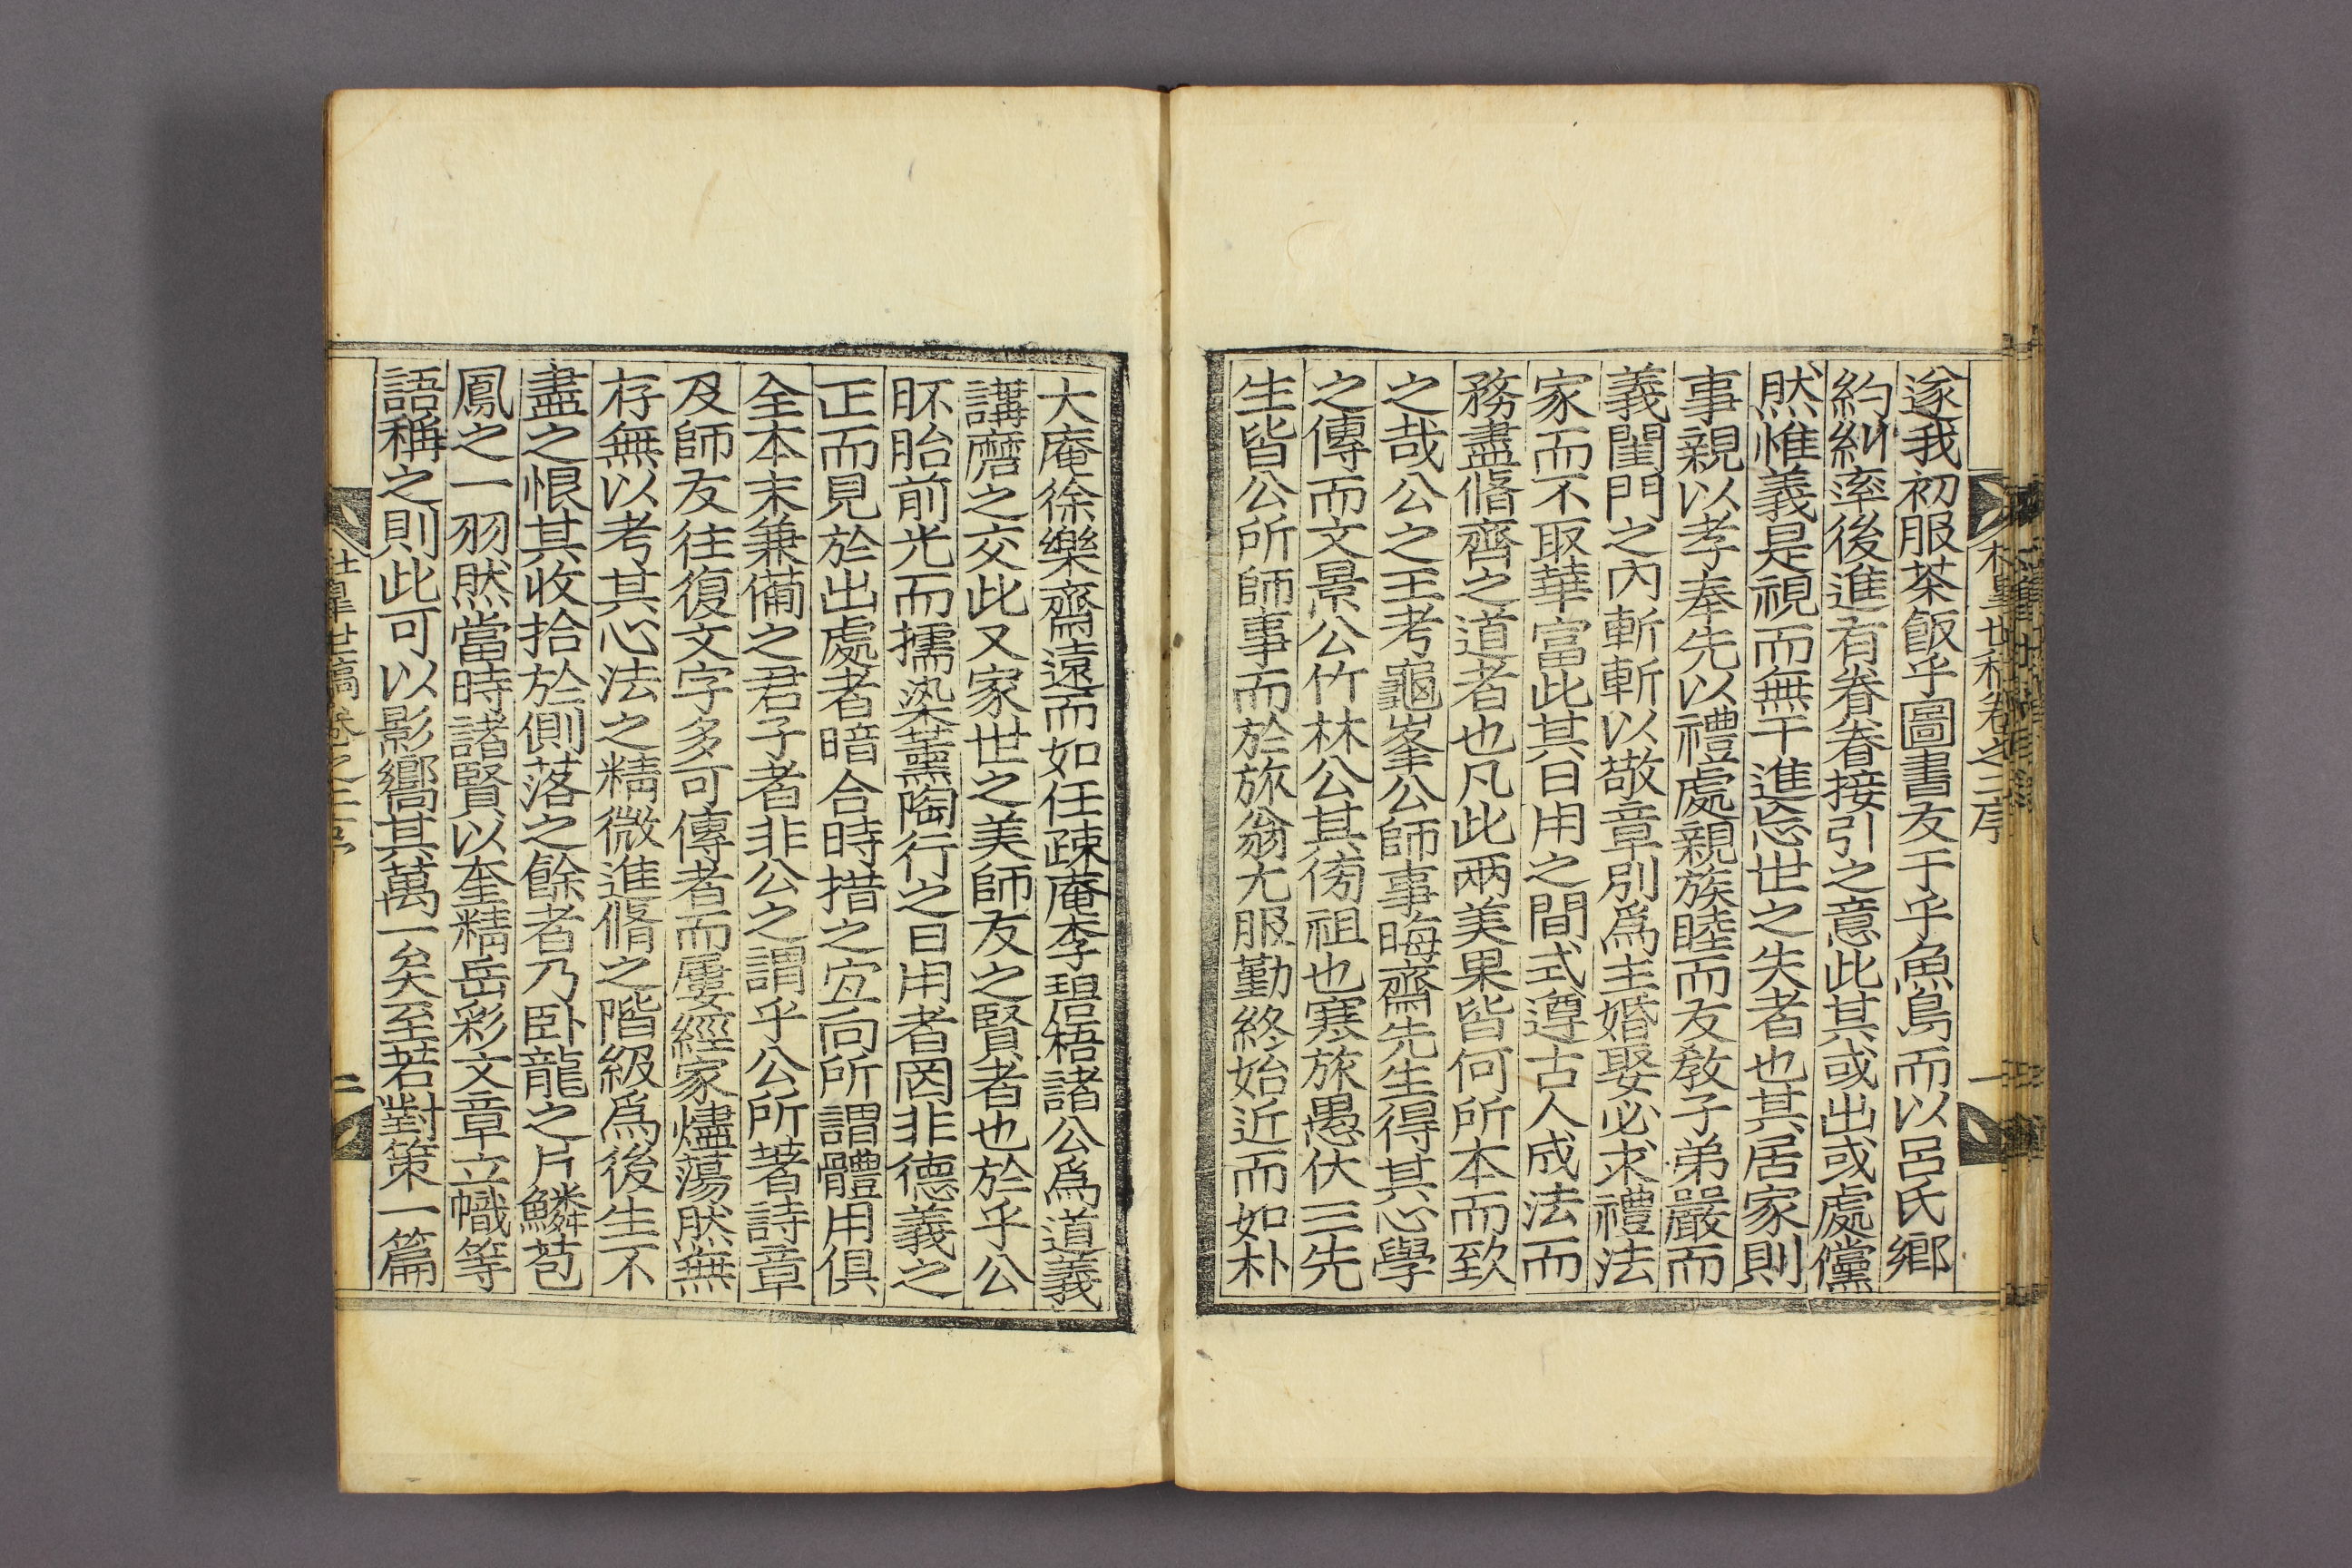 杜皐世稿卷之三序
一
遂我初服茶飯乎圖書友于乎魚鳥而以呂氏鄉
約糾率後進有眷眷接引之意此其或出或處儻
然惟義是視而無干進忘世之失者也其居家則
事親以孝奉先以禮處親族睦而友教子弟嚴而
義閨門之內斬斬以敬章別爲主婚娶必求禮法
家而不取華富此其日用之間式遵古人成法而
務盡脩齊之道者也凡此兩美果皆何所本而致
之哉公之王考龜峯公師事晦齋先生得其心學
之傳而文景公竹林公其傍祖也寒旅愚伏三先
生皆公所師事而於旅翁尤服勤終始近而如朴
大庵徐樂齋遠而如任疎菴李碧梧諸公爲道義
講磨之交此又家世之美師友之賢者也於乎公
胚胎前光而擩染薰陶行之日用者罔非德義之
正而見於出處者暗合時措之宜向所謂體用俱
全本末兼備之君子者非公之謂乎公所著詩章
及師友往復文字多可傳者而屢經家燼蕩然無
存無以考其心法之精微進脩之階級爲後生不
盡之恨其收拾於側落之餘者乃卧龍之片鱗苞
鳳之一羽然當時諸賢以奎精岳彩文章立幟等
語稱之則此可以影嚮其萬一矣至若對策一篇
杜皐世稿卷之三序
二